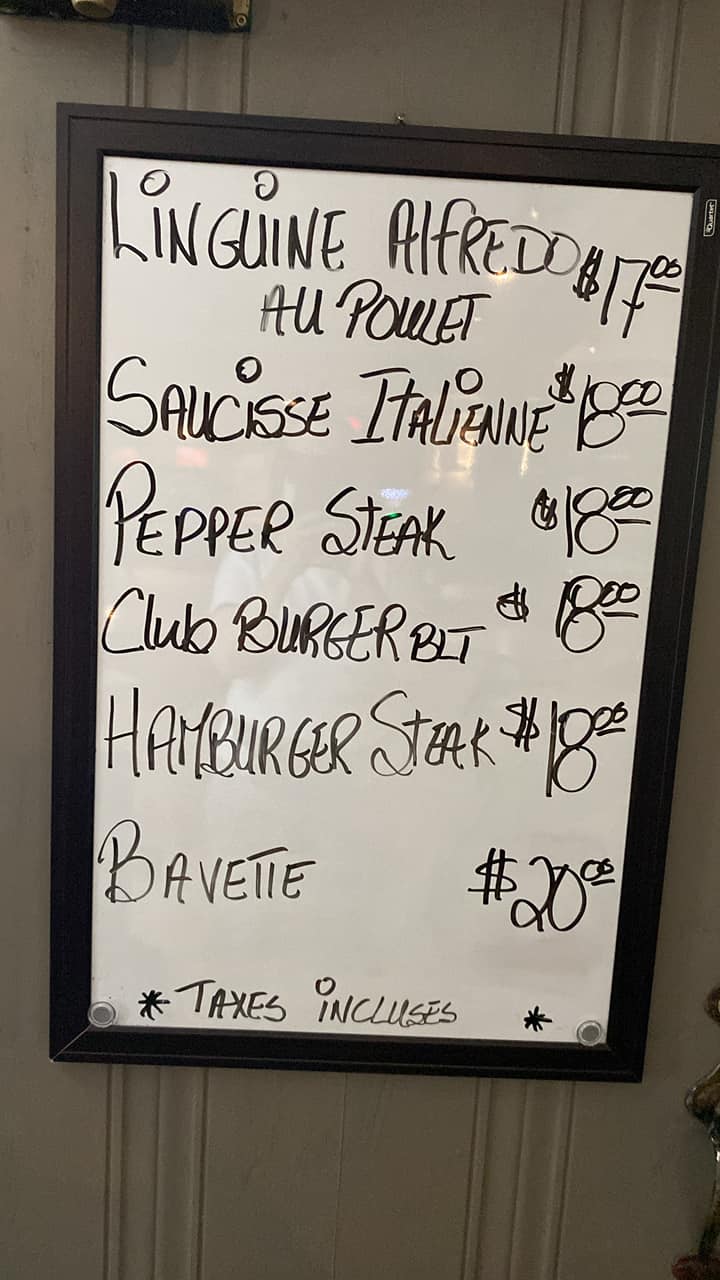 LINGUINE AlFREDO $17.00
AU POULET
SAUCISSE ITALIENNE $18.00
PEPPER STEAK $18.00
Club BURGER BLT $18.00
HAMBURGER STEAK $18.00
BAVETTE $20.00
* TAXES INCLUSES *
Quartet